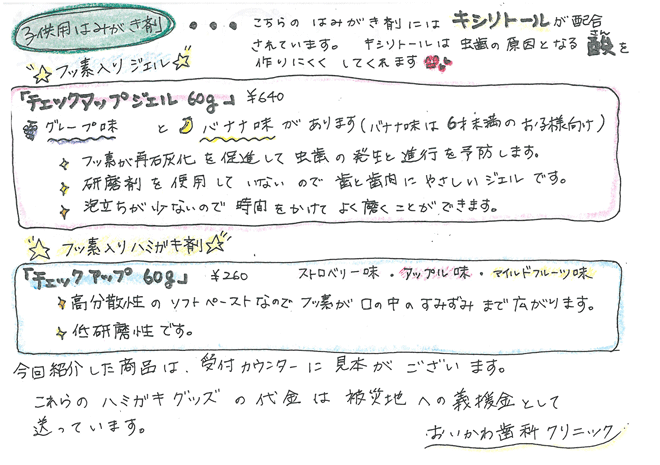 子供用はみがき剤 ・・・ こちらの はみがき剤には キシリトールが配合
されています。 キシリトールは 虫歯の原因となる 酸を
さん
作りにくく してくれます
フッ素入り ジェル
「チェックアップジェル 60g」 ¥640
グレープ味 と バナナ味 があります(バナナ味は 6才未満の お子様向け)
フッ素が再石灰化 を 促進して 虫歯の 発生と 進行を予防します。
研磨剤 を 使用して いないので 歯と歯肉に やさしいジェル です。
泡立ちが少ないので 時間をかけて よく磨くことができます。
フッ素入り ハミガキ剤
「チェックアップ 60g」 ¥260 ストロベリー味 ・ アップル味 ・ マイルドフルーツ味
高分散性の ソフトペーストなので フッ素が 口の中の すみずみ まで 広がります。
低研磨性です。
今回紹介した商品は、受付カウンターに 見本が ございます。
これらの ハミガキグッズ の 代金 は 被災地 への 義援金として
送っています。
おいかわ歯科クリニック